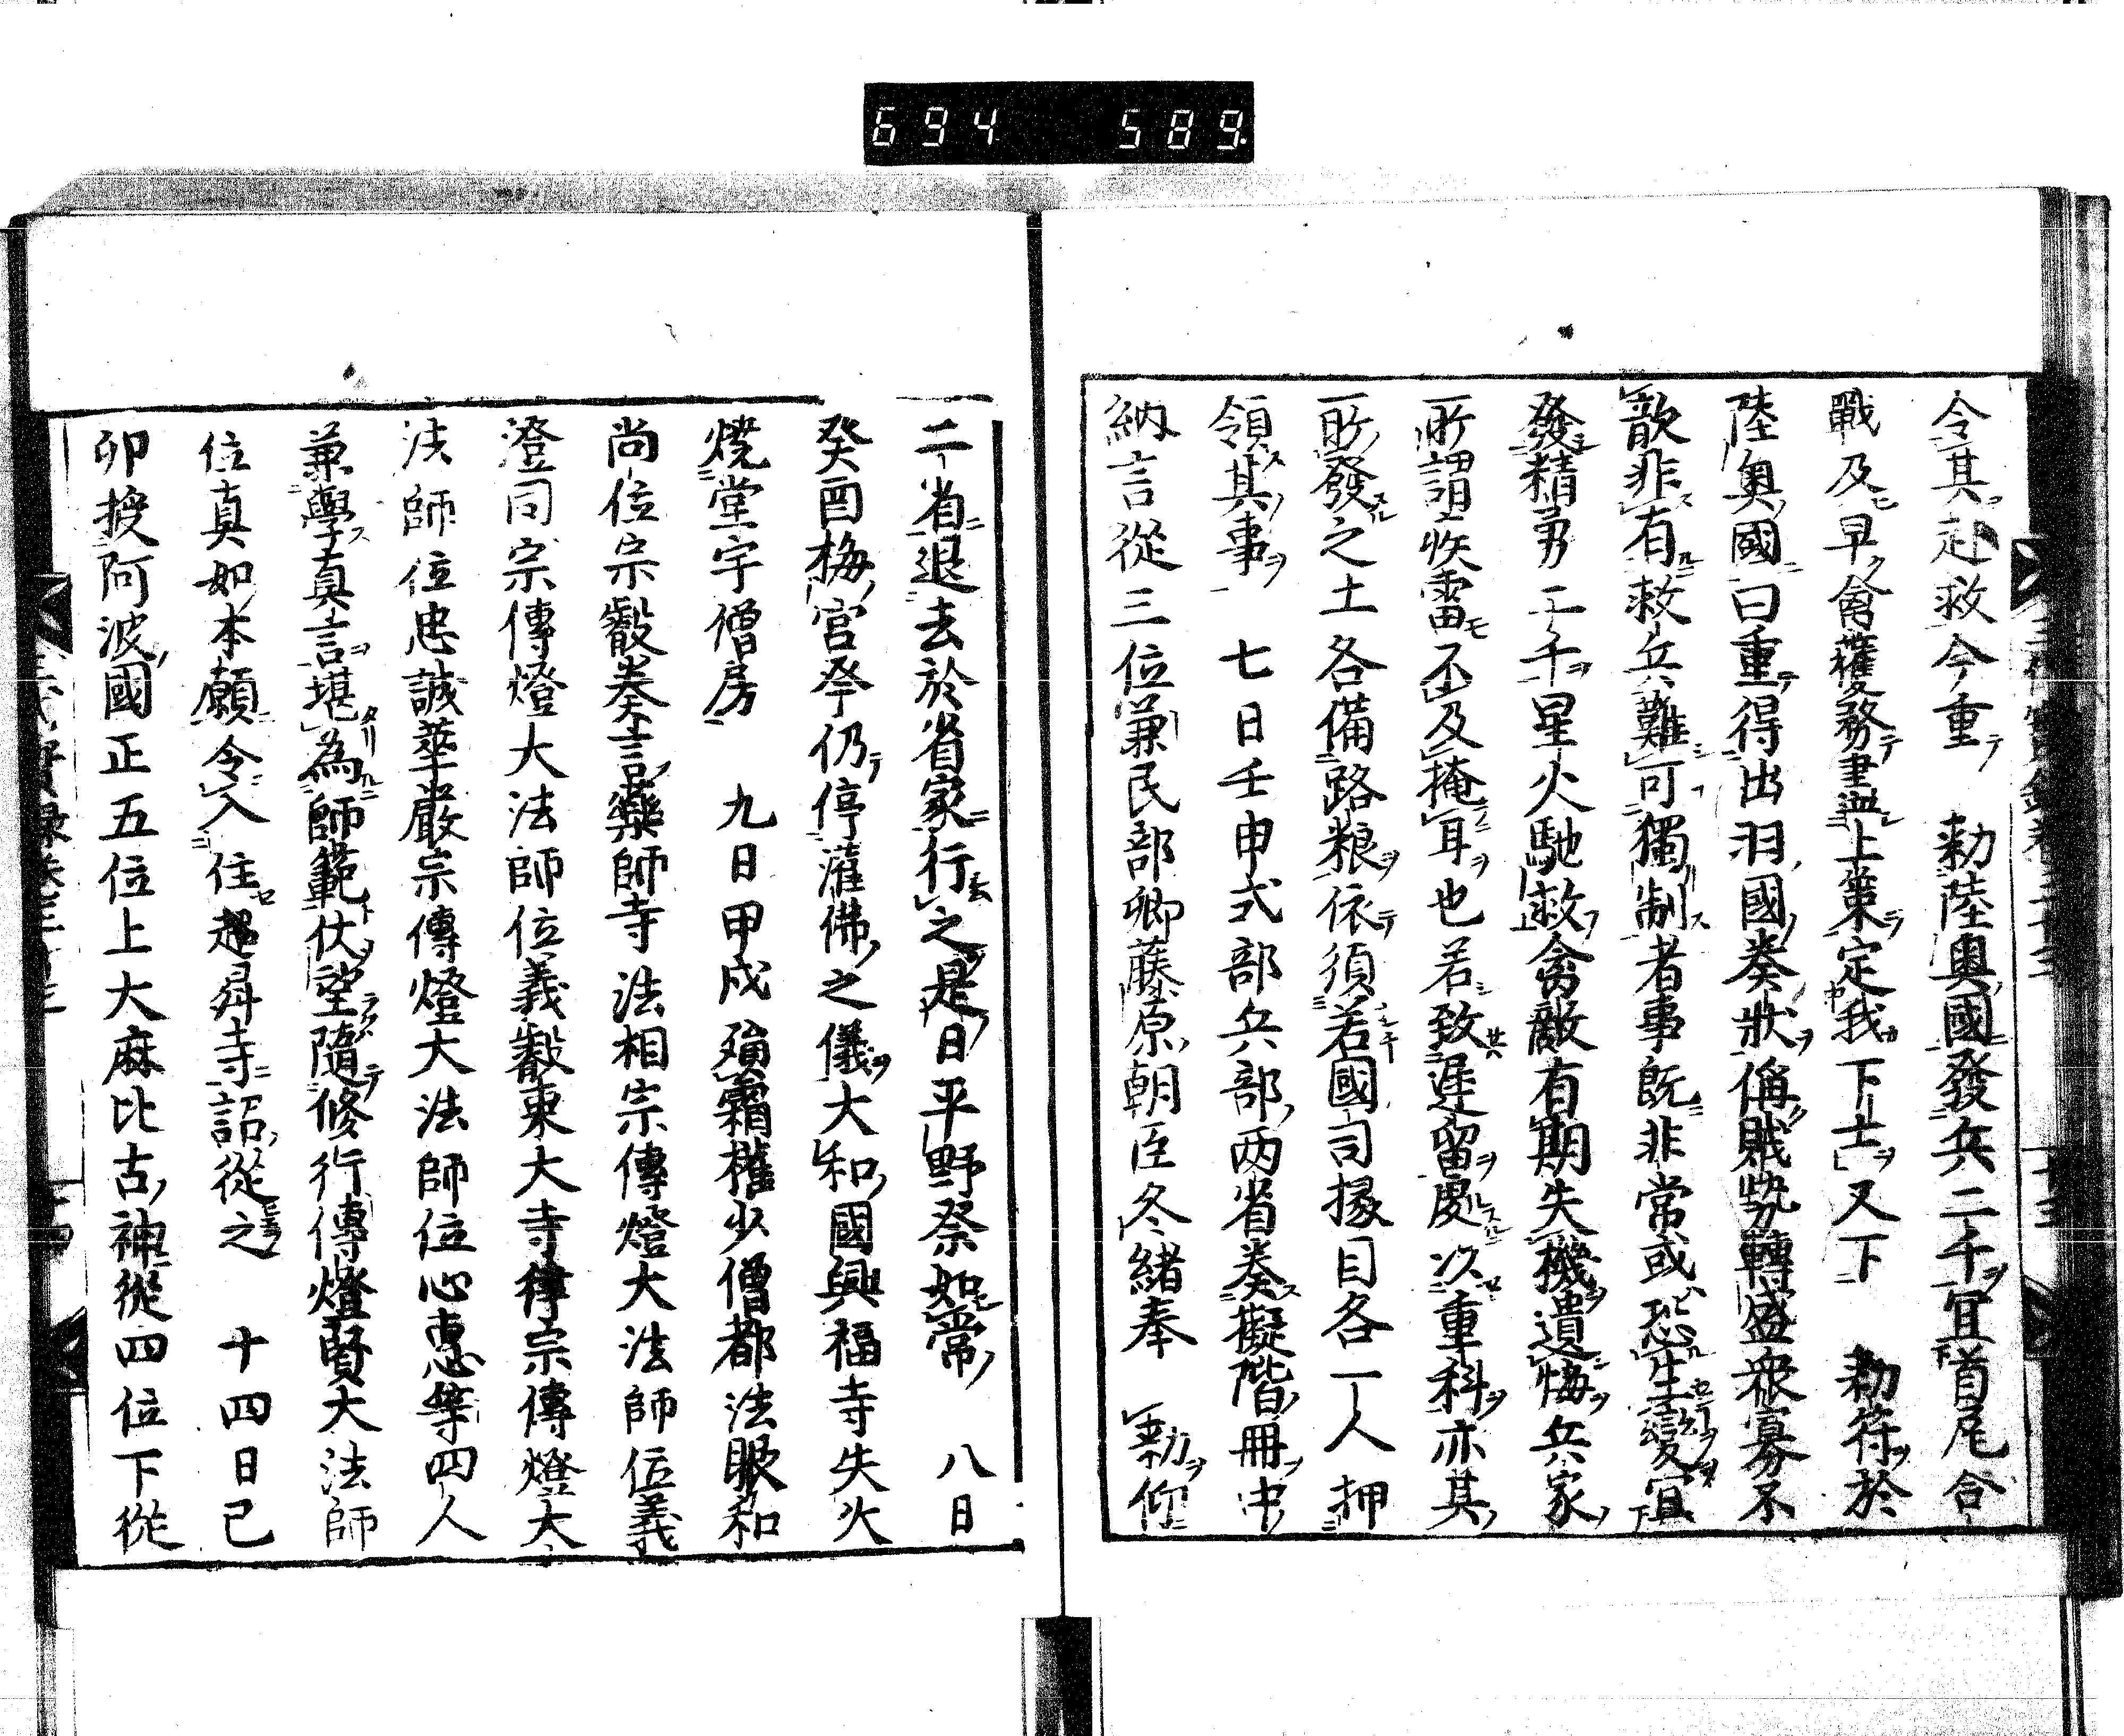 694 589
令其赴救今重 勅陸奥國發兵二千宜首尾合
戰及早禽獲務盡上策定我下士又下 勅符於
陸奥國曰重得出羽國奏狀偁賊勢轉盛衆寡不
敵非有救兵難可獨制者事既非常或恐生變宜
發精勇二千星火馳救禽敵有期失機遺悔兵家
所謂疾雷不及掩耳也若致遲留處以重科亦其
所發之士各備路粮依須若國司掾目各一人押
領其事 七日壬申式部兵部兩省奏擬階冊中
納言從三位兼民部卿藤原朝臣冬緒奉 勅仰
二省退去於省家行之是日平野祭如常 八日
癸酉梅宮祭仍停灌佛之儀大和國興福寺失火
燒堂宇僧房 九日甲戌 隕霜權少僧都法眼和
尚位宗叡奏言藥師寺法相宗傳燈大法師位義
澄同宗傳燈大法師位義叡東大寺律宗傳燈大
法師位忠誠華嚴宗傳燈大法師位心惠等四人
兼學真言堪為師範伏望隨修行傳燈賢大法師
位真如本願令入住超昇寺詔從之 十四日己
卯授阿波國正五位上大麻比古神從四位下從